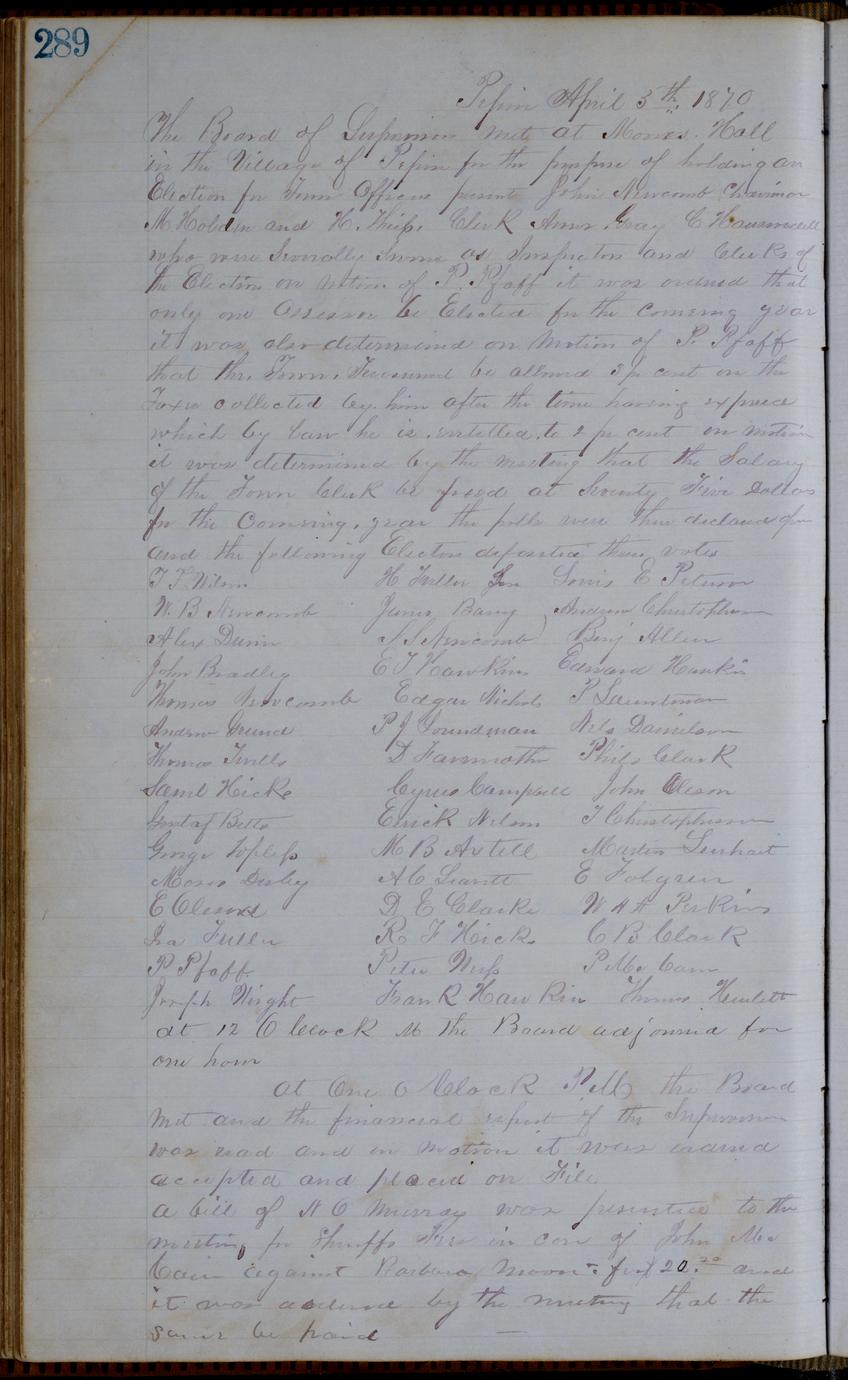 289
Pepin April 5th 1870
The Board of Supervisors met at Moores Hall
in the Village of Pepin for the purpose of holding an
Election for Town Officers present John Newcomb Chairman
M Holden and H. Clerk Amos Gray C
who were Severally sworn as Inspectors and Clerks of
the Election on Motion of P. Pfaff it was ordered that
only one Assessor be Elected for the comeing year
it was also determined on Motion of P. Pfaff
that the Town Treasurer be allowed 3 pr cent on the
Taxes collected by him after the time having expired
which by Law he is intetled to 2 pr cent on Motion
it was determined by the meeting that the Salary
of the Town Clerk be fixed at Seventy Five Dollars
for the Comeing year the polls were then declared open
and the following Electors deposited their votes
T T Wilson H Fuller Louis E Peterson
W. B Newcomb James Barry Andrew Christopherson
Alex Dunn S S Newcomb Benj Allen
John Bradley E T Hawkins Edward Hawkins
Thomas Newcomb Edgar Nichols P
Andrew P J Soundman Nels Danielson
Thomas D Philo Clark
Saml Hicks Cyrus Campbell John Oleson
Gustaf Betts Erick Nelson T Christopherson
George M B Axtell Martin Lenhart
Moses A C Leavitt E
E Oleson D E Clarke W H H Perkins
Ira Fuller R F Hicks C B Clark
P Pfaff Peter P Mc Cann
Joseph Wright Frank Hawkins Thomas Hewlett
at 12 O Clock M the Board adjourned for
one hour
At One O Clock P.M. the Board
met and the financial report of the Supervisors
was read and on Motion it was ordered
accepted and placed on File
A bill of N C Murray was presented to the
meeting for Sheriffs Fees in case of John Mc
Cain against Barbara Moore for 20. and
it was ordered by the meeting that the
same be paid